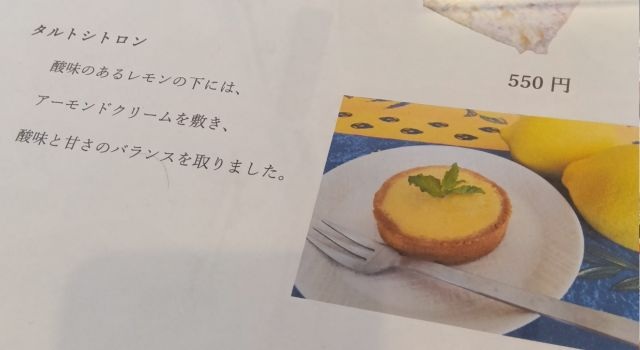 タルトシトロン
酸味のあるレモンの下には、
アーモンドクリームを敷き、
酸味と甘さのバランスを取りました。
550 円